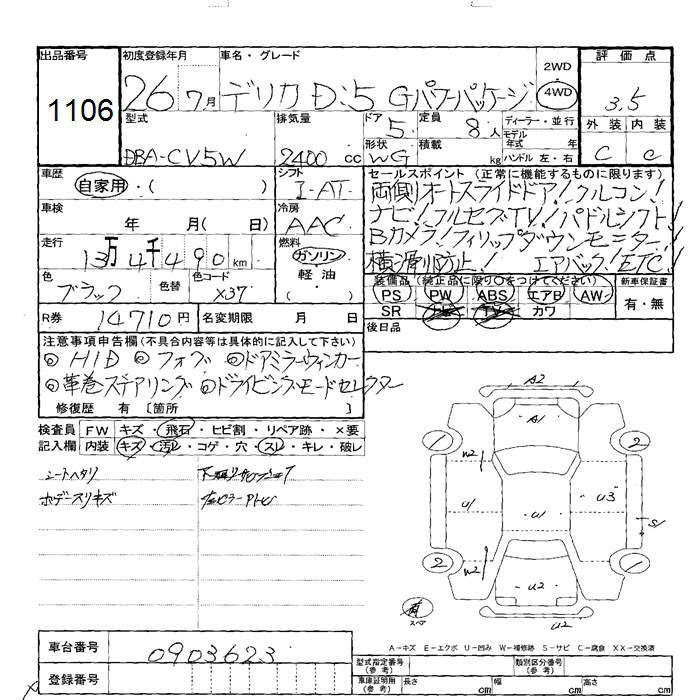 出品番号
1106
初度登録年月
26 7月
車名・グレード
デリカ D:5 Gパワーパッケージ
2WD
4WD
評価点
3.5
外装 内装
C C
型式
DBA-CV5W
排気量
2400 cc
ドア
5
定員
8人
形状
WG
積載
kg
ディーラー・並行
モデル
年式 年
ハンドル 左・右
車歴
自家用・( )
シフト
I-AT
車検
年 月( 日)
冷房
AAC
走行
13万4千490km
燃料
ガソリン
軽油
( )
色
ブラック
色替
色コード
X37
R券
14710円
名変期限 月 日
セールスポイント (正常に機能するものに限ります)
両側オートスライドドア!フルコン!
ナビ!フルセグTV!パドルシフト!
Bカメラ!フィリップダウンモニター!
横滑り防止! エアバック!ETC!
装備品 (純正品に限り○をつけてください)
PS PW ABS エアB AW
SR カワ
新車保証書
有・無
後日品
注意事項申告欄(不具合内容等は具体的に記入して下さい)
◎HID ◎フォグ ◎ドアミラーウィンカー
◎革巻ステアリング ◎ドライビングモードセレクター
修復歴 有 〔箇所 〕
検査員 FW キズ・飛石・ヒビ割・リペア跡・×要
記入欄 内装 キズ・汚レ・コゲ・穴・スレ・キレ・破レ
シートヘタリ
ボデースリキズ
A2
A1
1
2
W2
U1
U1
U3
S1
2
W2
1
U2
U2
有
スペア
A-キズ E-エクボ U-凹み W-補修跡 S-サビ C-腐食 XX-交換済
車台番号
0903623
登録番号
型式指定番号
(参考)
類別区分番号
(参考)
車庫証明用
(参考)
長さ cm
幅 cm
高さ cm